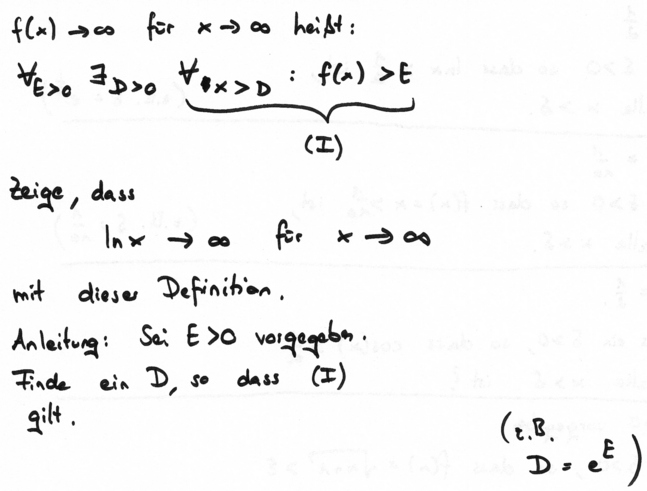 f(x) → ∞ für x → ∞ heißt:
∀E>0 ∃D>0 ∀x>D : f(x) > E
(I)
Zeige, dass
ln x → ∞ für x → ∞
mit dieser Definition.
Anleitung: Sei E>0 vorgegeben.
Finde ein D, so dass (I)
gilt.
(z.B.
D = e^E)